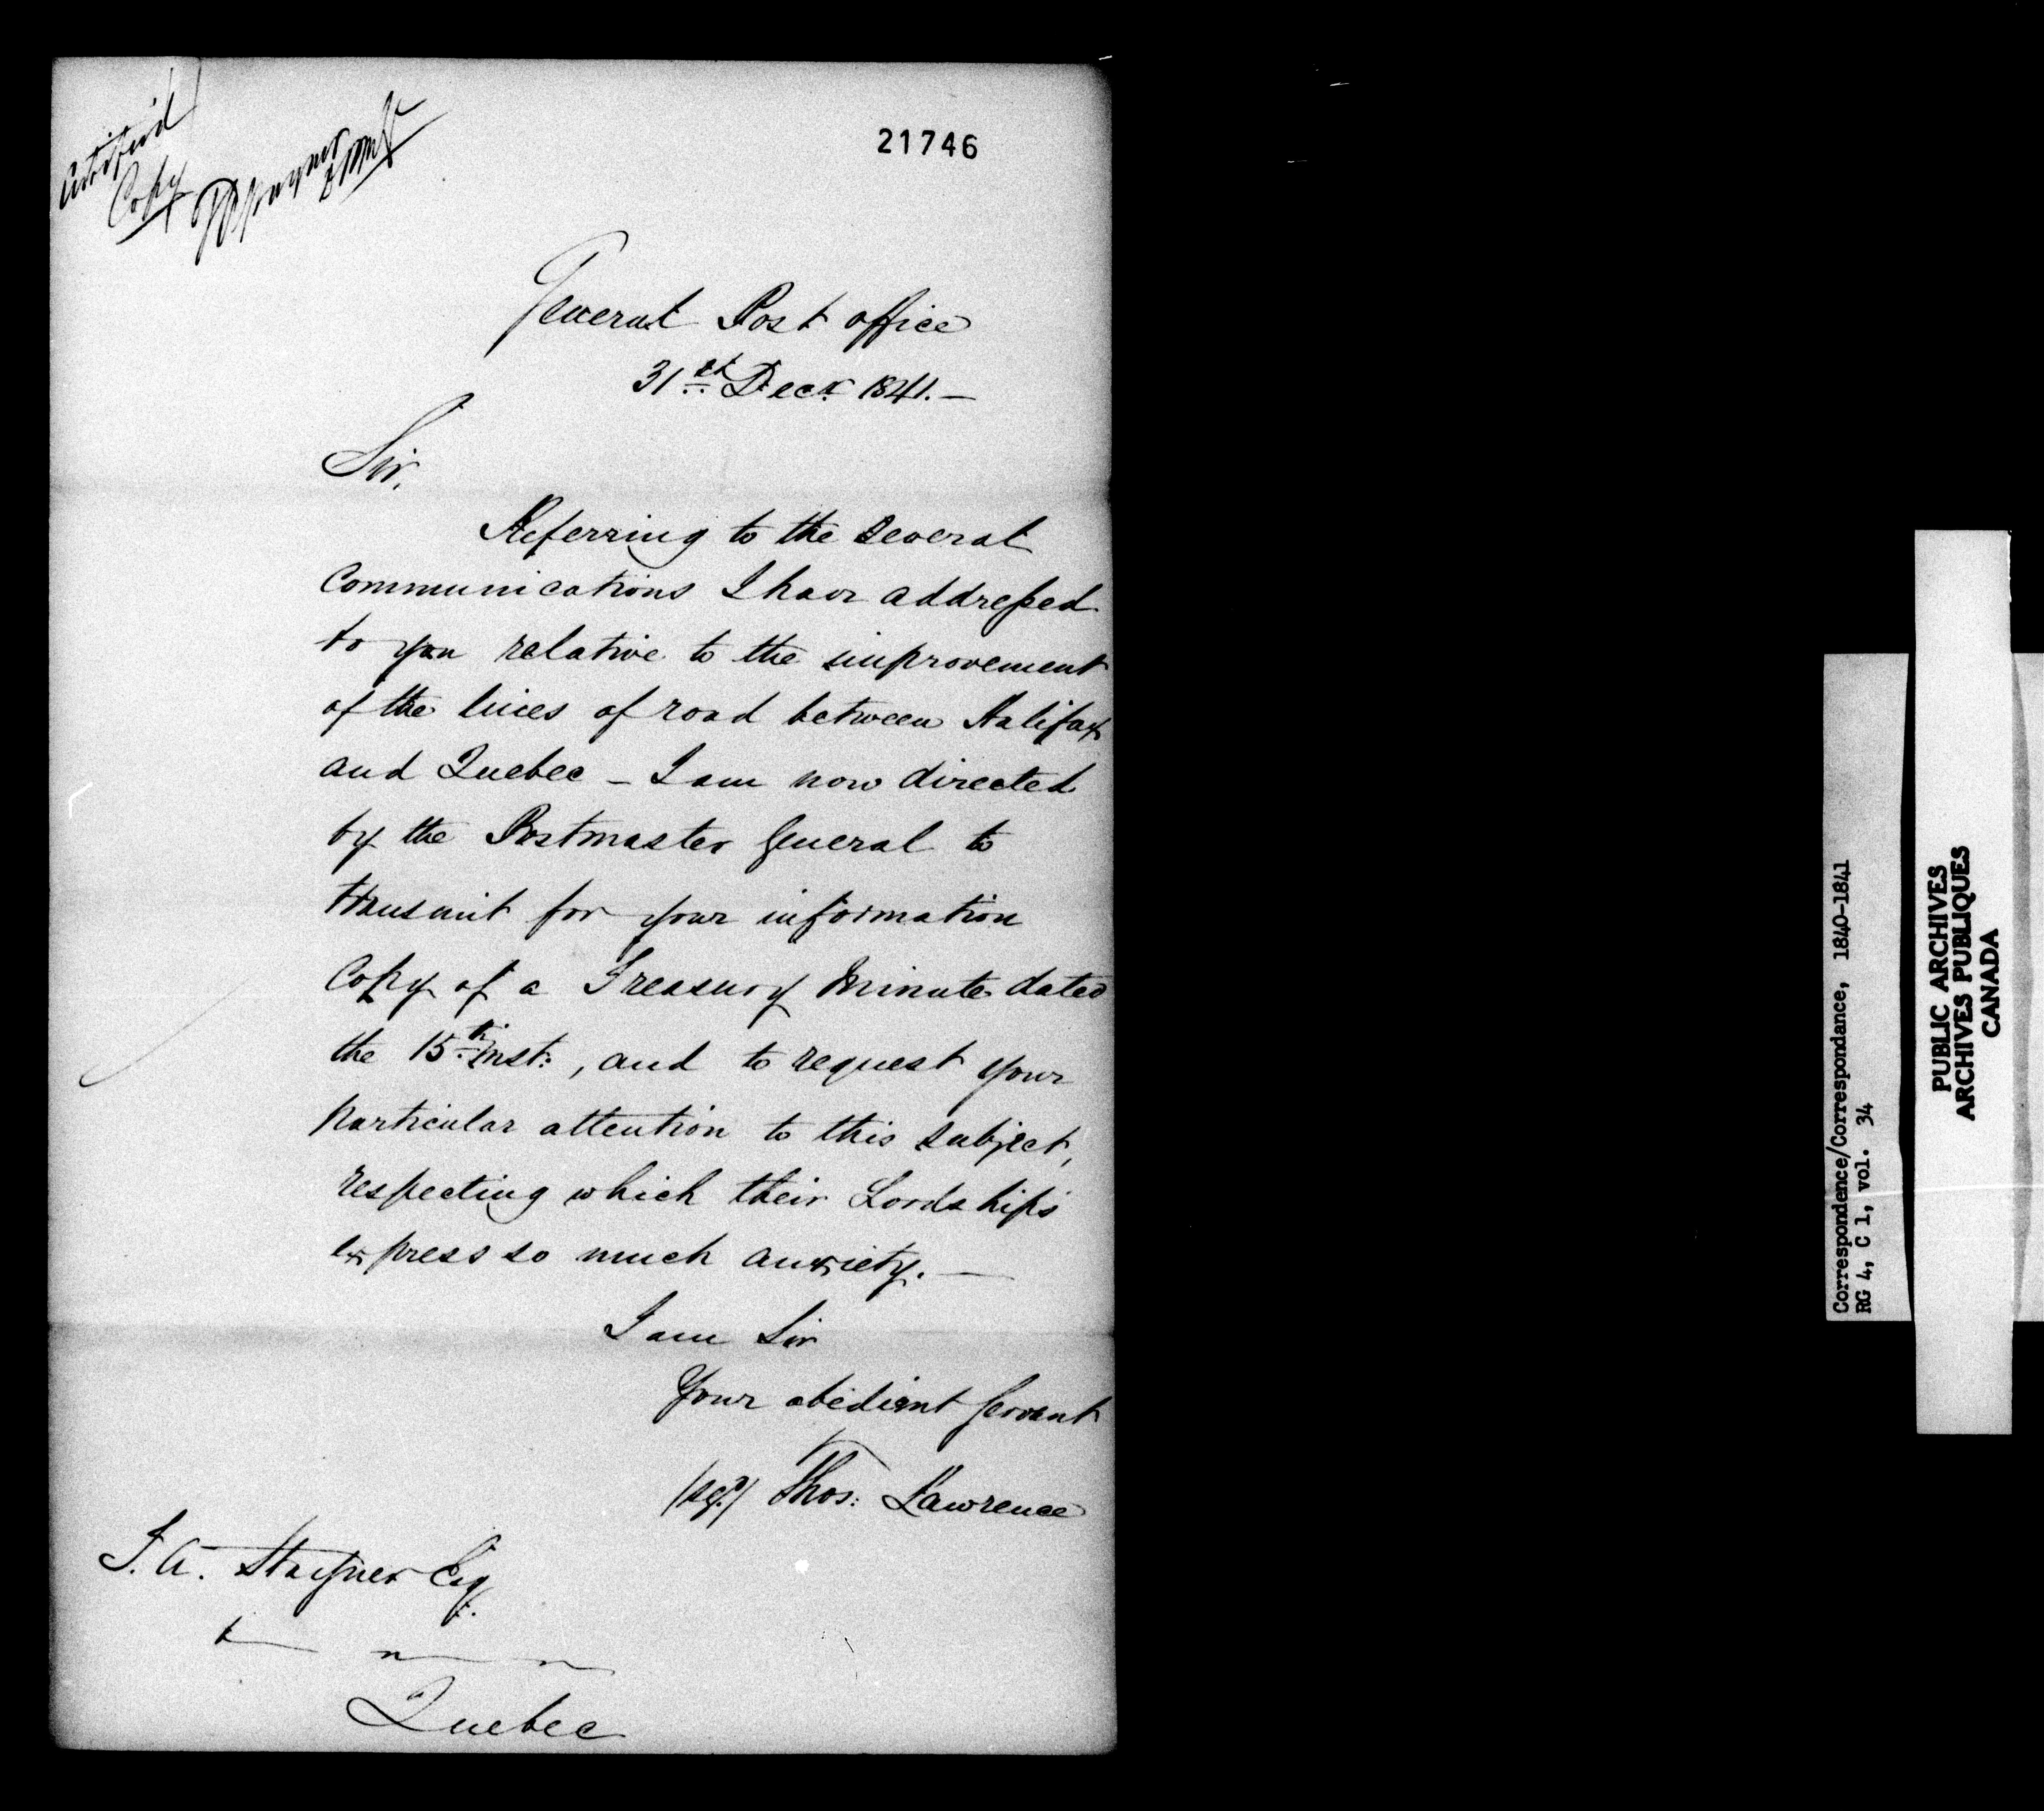 Certified
Copy
21746
General Post office
31st Decr. 1841.—
Sir,
Referring to the several
Communications I have addressed
to you relative to the improvement
of the lines of road between Halifax
and Quebec – I am now directed
by the Postmaster General to
transmit for your information
Copy of a Treasury Minute dated
the 15th inst:, and to request your
particular attention to this subject,
respecting which their Lordships
express so much anxiety. —
I am Sir
Your obedient Servant
(sgd.) Thos: Lawrence
T. A. Stayner Esq.
Quebec
Correspondence/Correspondance, 1840-1841
RG 4, C 1, vol. 34
PUBLIC ARCHIVES
ARCHIVES PUBLIQUES
CANADA